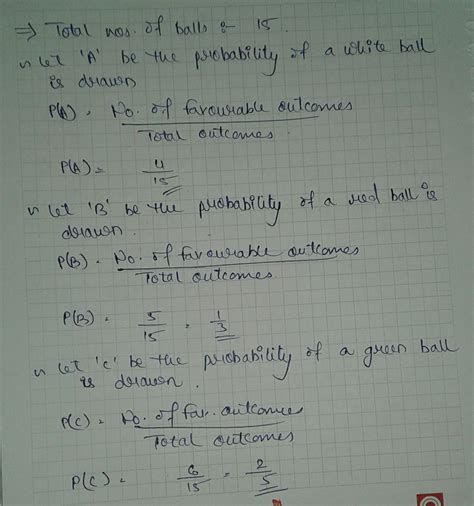 ⇒ Total nos. of balls :- 15.
ıı) Let 'A' be the probability of a white ball
is drawn
P(A) = No. of favourable outcomes
Total outcomes.
P(A) = 4
15
ıı) Let 'B' be the probability of a red ball is
drawn.
P(B) = No. of favourable outcomes
Total outcomes.
P(B) = 5 = 1
15 3
ıı) Let 'C' be the probability of a green ball
is drawn.
P(C) = No. of fav. outcomes
Total outcomes
P(C) = 6 = 2
15 5